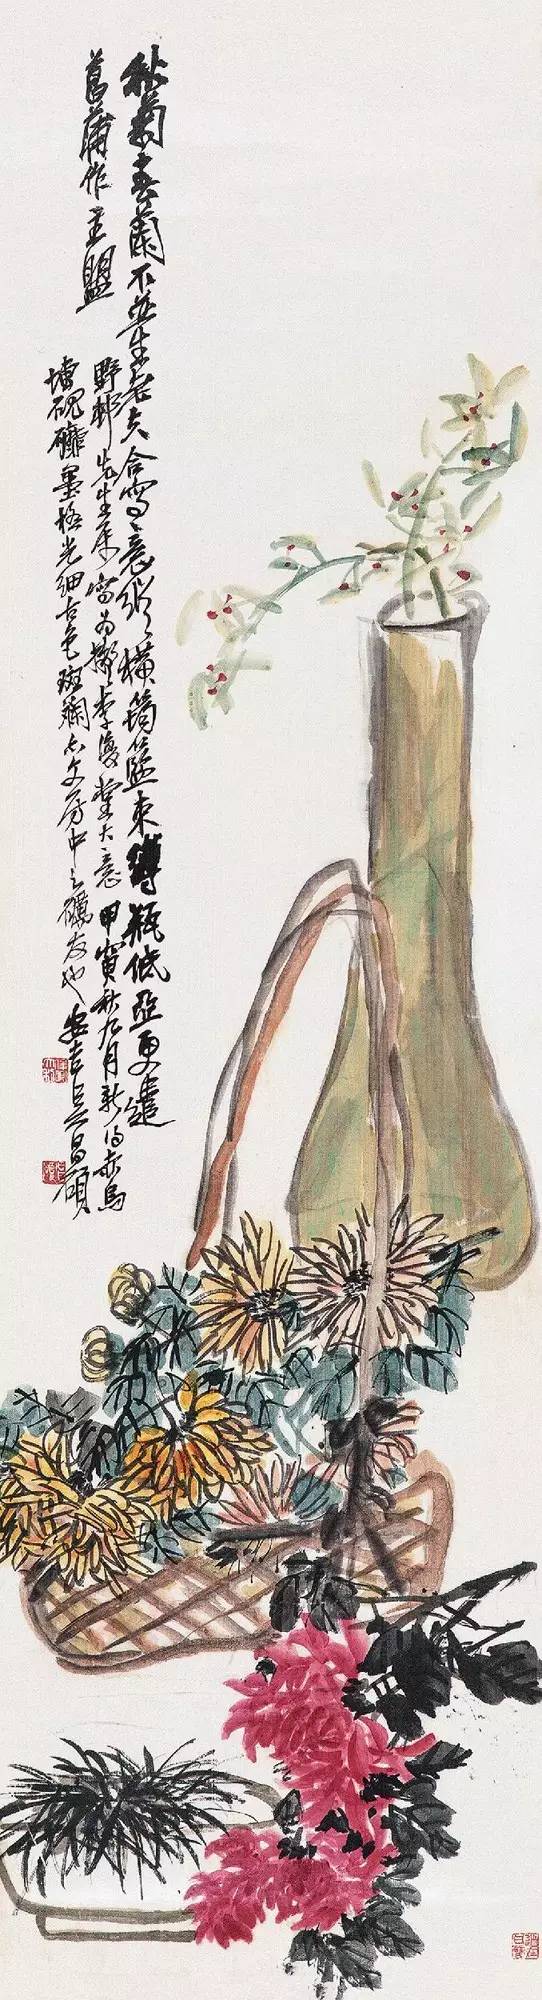 秋菊春蘭不並生老夫合寫意縱橫筠籃束縛瓶低亞更遣
菖蒲作主盟
野邨先生屬寫為擬李復堂大意甲寅秋九月新得赤烏
塼硯礲墨極光細古色斑斕文房中之礪友也安吉吳昌碩